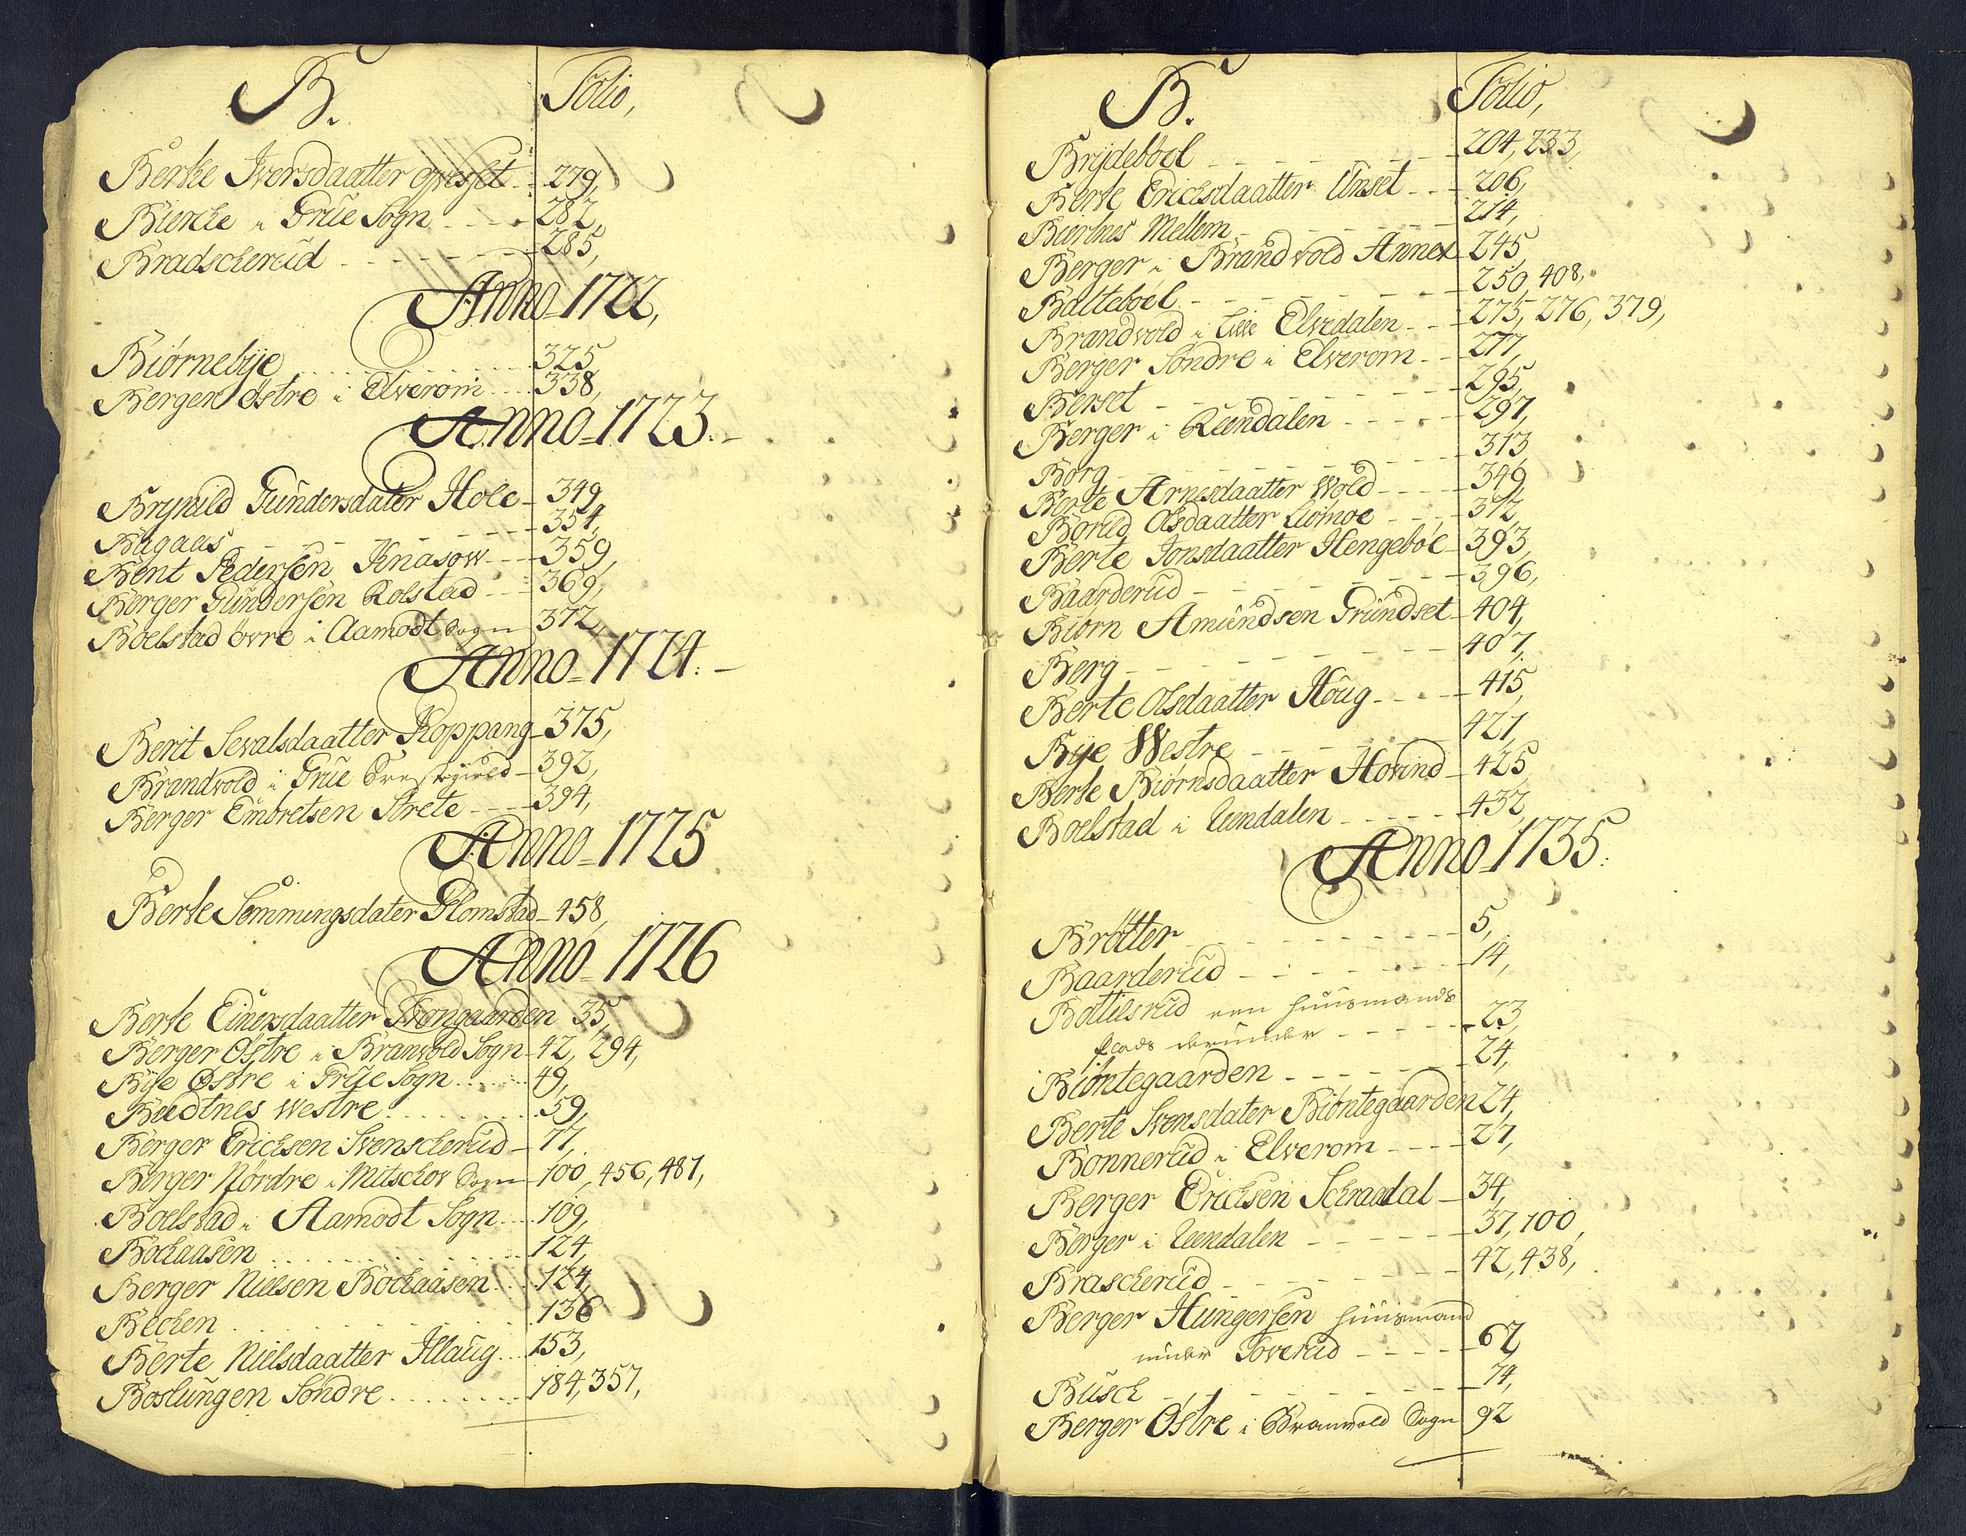 B. Folio,
Berte Iversdaatter opseset 279,
Biercke i Grüe Sogn 282,
Bradscherud 285,
Anno 1722,
Biörnebye 325,
Bergen östre i Elverom 338,
Anno 1723.
Brynild Gundersdater Hole 349,
Bagaas 354,
Bent Pedersen Knasow 359,
Berger Gündersen Rolstad 369,
Boelstad övre i Aamodt Sogn 372,
Anno 1724.
Berit Sevalsdaatter Koppang 375,
Brandvold i Grüe Prestegield 392,
Berger Embretsen Strete 394,
Anno 1725
Berte Semmingsdater Glomstad 458,
Anno 1726
Berte Einersdaatter Trongaarden 35,
Berger Östre i Branvold Sogn 42, 294,
Bye Östre i Grüe Sogn 49,
Budtnes Westre 59,
Berger Erichsen Svenscherud 77,
Berger Nördre i Mitschov Sogn 100, 456, 487,
Boelstad i Aamodt Sogn 109,
Bochaasen 124,
Berger Nielsen Bochaasen 124,
Bechen 136
Berte Nielsdaatter Illaug 153,
Boslungen Söndre 184, 357,
B. Folio,
Brydeböel 204, 233,
Berte Erichsdaatter Unset 206,
Biertnes Mellem 214,
Berger i Brandvold Annex 245,
Balteböel 250, 408,
Brandvold i Lille Elvedalen 275, 276, 379,
Berger Söndre i Elverom 277,
Berset 295,
Berger i Reendalen 297,
Borg 313,
Berte Arnesdaatter Wold 349
Borild Olsdaatter 372
Berte Jonsdaatter Hengeböe 393,
Baarderud 396,
Biörn Amundsen Gründset 404,
Berg 407,
Berte Olsdaatter Houg 415,
Bye Westre 421,
Berte Biörnsdaatter Hovind 425,
Boelstad i Rendalen 432,
Anno 1735.
Bråtter 5,
Baarderud 14,
Bottilsrud een huusmands
plads derunder 23,
Biöntegaarden 24,
Berte Svensdater Biöntegaarden 24,
Bonnerud i Elverom 27,
Berger Erichsen Schraadal 34,
Berger i Rendalen 37, 100,
Brascherud 42, 438,
Berger Hungersen huusmand
under Toverud 67,
Busch 74,
Berger Östre i Branvold Sogn 92